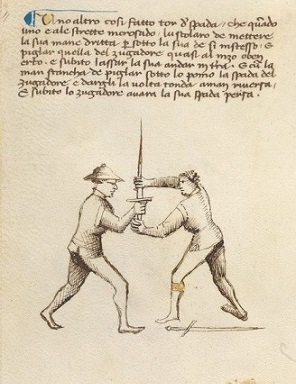 Uno altro cosi fatto tor d'spada / che quãdo
uno e ale strette incrosado / lu scolaro de mettere
la sua mane dritta p sotto la sua de si instesso · E
piglar quella del zugadore quasi al mezo o ben
erto · e subito lassar la sua andar in tra · E cũ la
man stancha de piglar sotto lo pomo la spada del
zugadore e dargli la volta tonda a man riversa /
E subito lo zugadore avara la sua spada persa ·